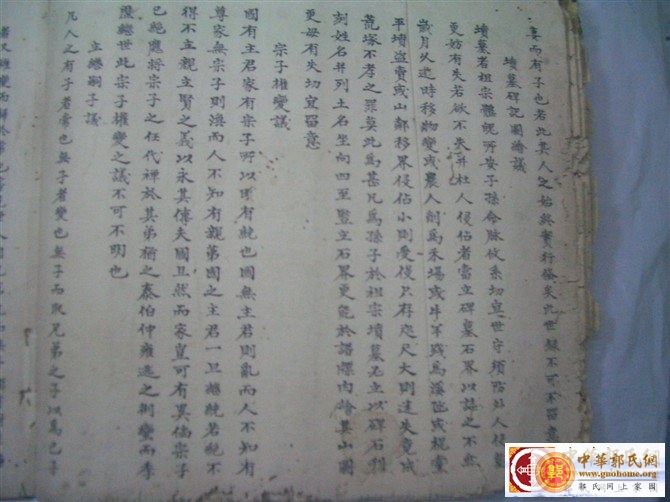 妻而有子也者此其人之始終實行發矣此世親不可不留意
墳墓碑記圖繪議
墳墓者祖宗體魄所安子孫命脉攸系切宜世守須防外人侵塟
更妨有失若欲不失并杜人侵佔者當立碑墓石界以誌之不然
歲月久遠時移物變或農人剷為禾場或牛羊踐為溪阯或視棄
平墳盜賣或山鄰移界侵佔小則憂侵只存咫尺大則迷失竟成
荒塚不孝之罪莫此為甚凡為孫子於祖宗墳墓必立以碑石刊
刻姓名并列土名坐向四至豎立石界更能於譜牒內繪其山圖
更毋有失切宜留意
宗子權變議
國有主君家有宗子所以明有統也國無主君則亂而人不知有
尊家無宗子則渙而人不知有親第國之主君一旦絕統若絕不
得不立親立賢之義以永其傳夫國且然而家豈可有異儻宗子
已絕應將宗子之任代禪於其弟猶之泰伯仲雍逃之荆蠻而季
歷繼世此宗子權變之議不可不明也
立繼嗣子議
凡人之有子者常也無子者變也無子而取兄弟之子以為己子
中華郭氏網
www.gnohome.com
郭氏網上家園